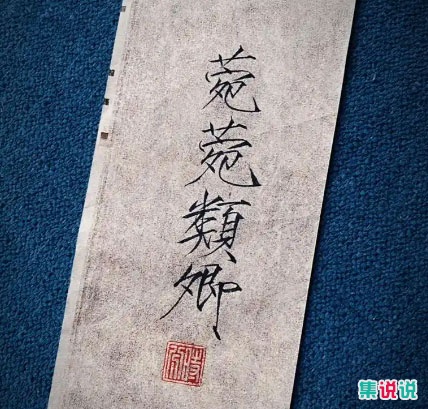 菀菀類卿
集说说